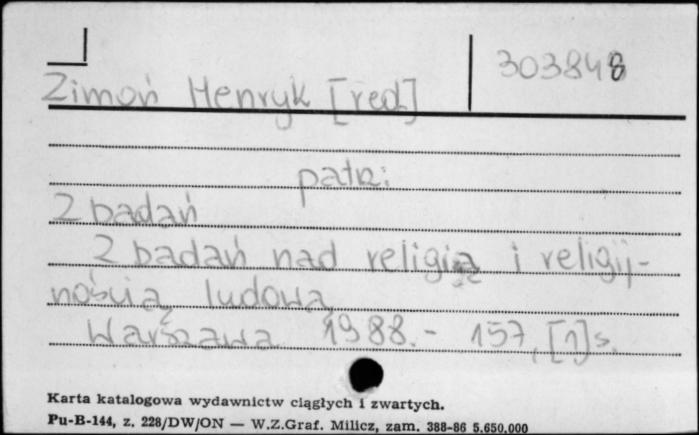 303848
Zimoń Henryk [red.]
patrz:
Z badań
Z badań nad religią i religij-
nością ludową
Warszawa 1988.- 157, [1] s.
Karta katalogowa wydawnictw ciągłych i zwartych.
Pu-B-144, z. 228/DW/ON — W.Z.Graf. Milicz, zam. 388-86 5.650.000